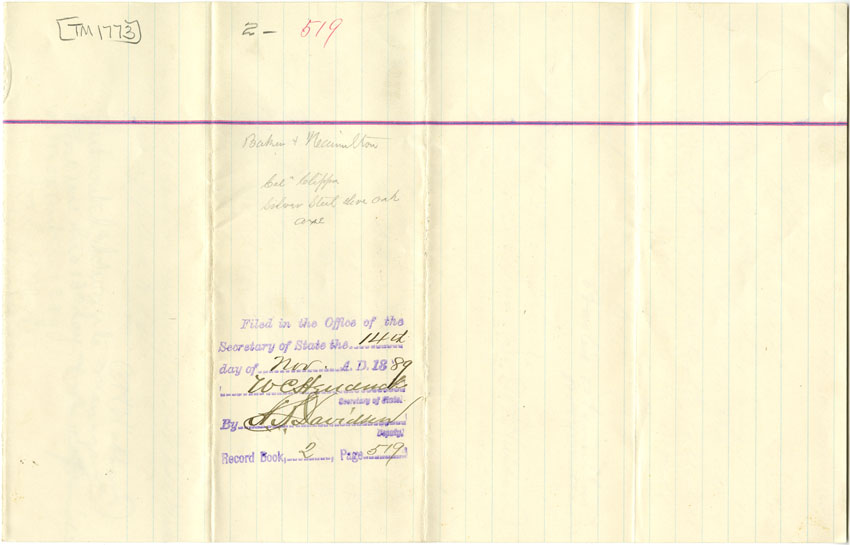 [TM1773]
2 - 519
Baker & Hamilton
Cal" Clipper
Silver Steel Live Oak
axe
Filed in the Office of the
Secretary of State the 14th
day of Nov. A. D. 1889
W C Hendricks
Secretary of State.
By Davidson
Deputy.
Record Book, 2, Page 519